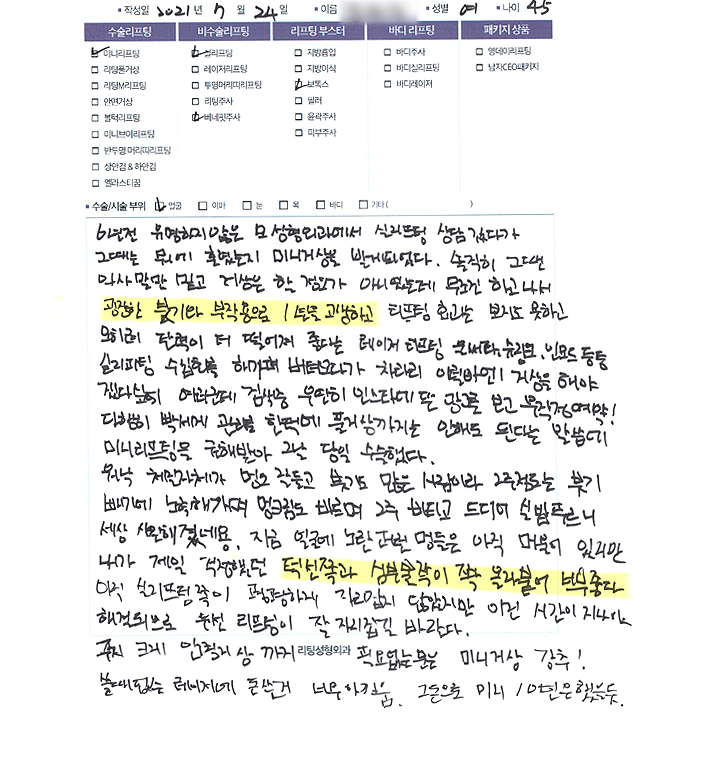 작성일 2021년 7월 24일 이름 성별 여 나이 45
수술리프팅 비수술리프팅 리프팅 부스터 바디 리프팅 패키지 상품
미니리프팅 실리프팅 지방흡입 바디주사 영데이리프팅
리팅풀거상 레이저리프팅 지방이식 바디실리프팅 남자CEO패키지
리팅M리프팅 투명머리띠리프팅 보톡스 바디레이저
안면거상 리팅주사 필러
볼턱리프팅 베네핏주사 윤곽주사
미니브이리프팅 피부주사
반투명 머리띠리프팅
상안검 & 하안검
엘라스티꿈
수술/시술 부위 얼굴 이마 눈 목 바디 기타( )
6년전 유명하지않은 모 성형외과에서 실리프팅 상담 갔다가
그때는 뭐에 홀렸는지 미니거상을 받게되었다. 솔직히 그때
의사말만 믿고 거상은 한 정모가 아니었는데 무조건 하고나서
굉장한 붓기와 부작용으로 1년을 고생하고 리프팅 효과는 보지도 못하고
오히려 탄력이 더 떨어져 좋다는 레이저 리프팅 울쎄라, 슈링크, 인모드 등등
실리프팅 수십회를 해가며 버텨오다가 차라리 이럴바엔 거상을 해야
겠다싶어 여러군데 검색중 우연히 인스타에 뜬 광고를 보고 무작정예약!
다행히 박세게 한편에 풀거상까지는 안해도 된다는 말씀에
미니리프팅을 권해받아 그날 당일 수술했다.
워낙 체질자체가 멍도 잘들고 붓기도 많은 사람이라 2주정도는 붓기
빼기에 노력해가며 멍크림도 바르며 2주 버티고 드디어 실밥푸르니
세상 시원해졌네용. 지금 얼굴에 노란 멍들은 아직 머물어 있지만
내가 제일 걱정했던 턱선쪽과 심부볼쪽이 쫙 올라붙어 너무좋다
아직 실리프팅쪽이 평평하게 자리잡지 않았지만 이건 시간이 지나야
해결되므로 우선 리프팅이 잘 자리잡길 바란다.
굳이 크게 안면거상까지 필요없는분은 미니거상 강추!
리팅성형외과
쓸데없는 레이저에 돈쓴거 너무아까움. 그돈으로 미니 10번은했을듯.